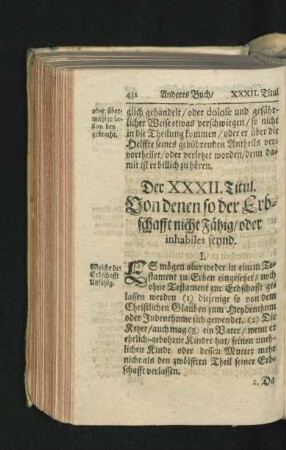 452 Anderes Buch/ XXXII. Titul
oder über-
mäßige læ-
sion bey-
gebracht.
glich gehandelt/ oder dolose und gefähr-
licher Weise etwas verschwiegen/ so nicht
in die Theilung kommen/ oder er über die
Helffte seines gebührenden Antheils ver-
vortheilet/ oder verletzet worden/ denn da-
mit ist er billich zu hören.
Der XXXII. Titul.
Von denen so der Erb-
schafft nicht Fähig/ oder
inhabiles seynd.
I.
Welche der
Erbschafft
Unfähig.
ES mögen aber weder in einem Te-
stament zu Erben eingesetzet/ noch
ohne Testament zur Erbschafft ge-
lassen werden (1) diejenige so von dem
Christlichen Glauben zum Heydenthum
oder Judenthume sich gewendet. (2) Die
Ketzer/ auch mag (3) ein Vater/ wenn er
ehrlich-gebohrne Kinder hat/ seinen uneh-
lichen Kinde oder dessen Mutter mehr
nicht als den zwölfften Theil seiner Erb-
schafft verlassen.
2. Da